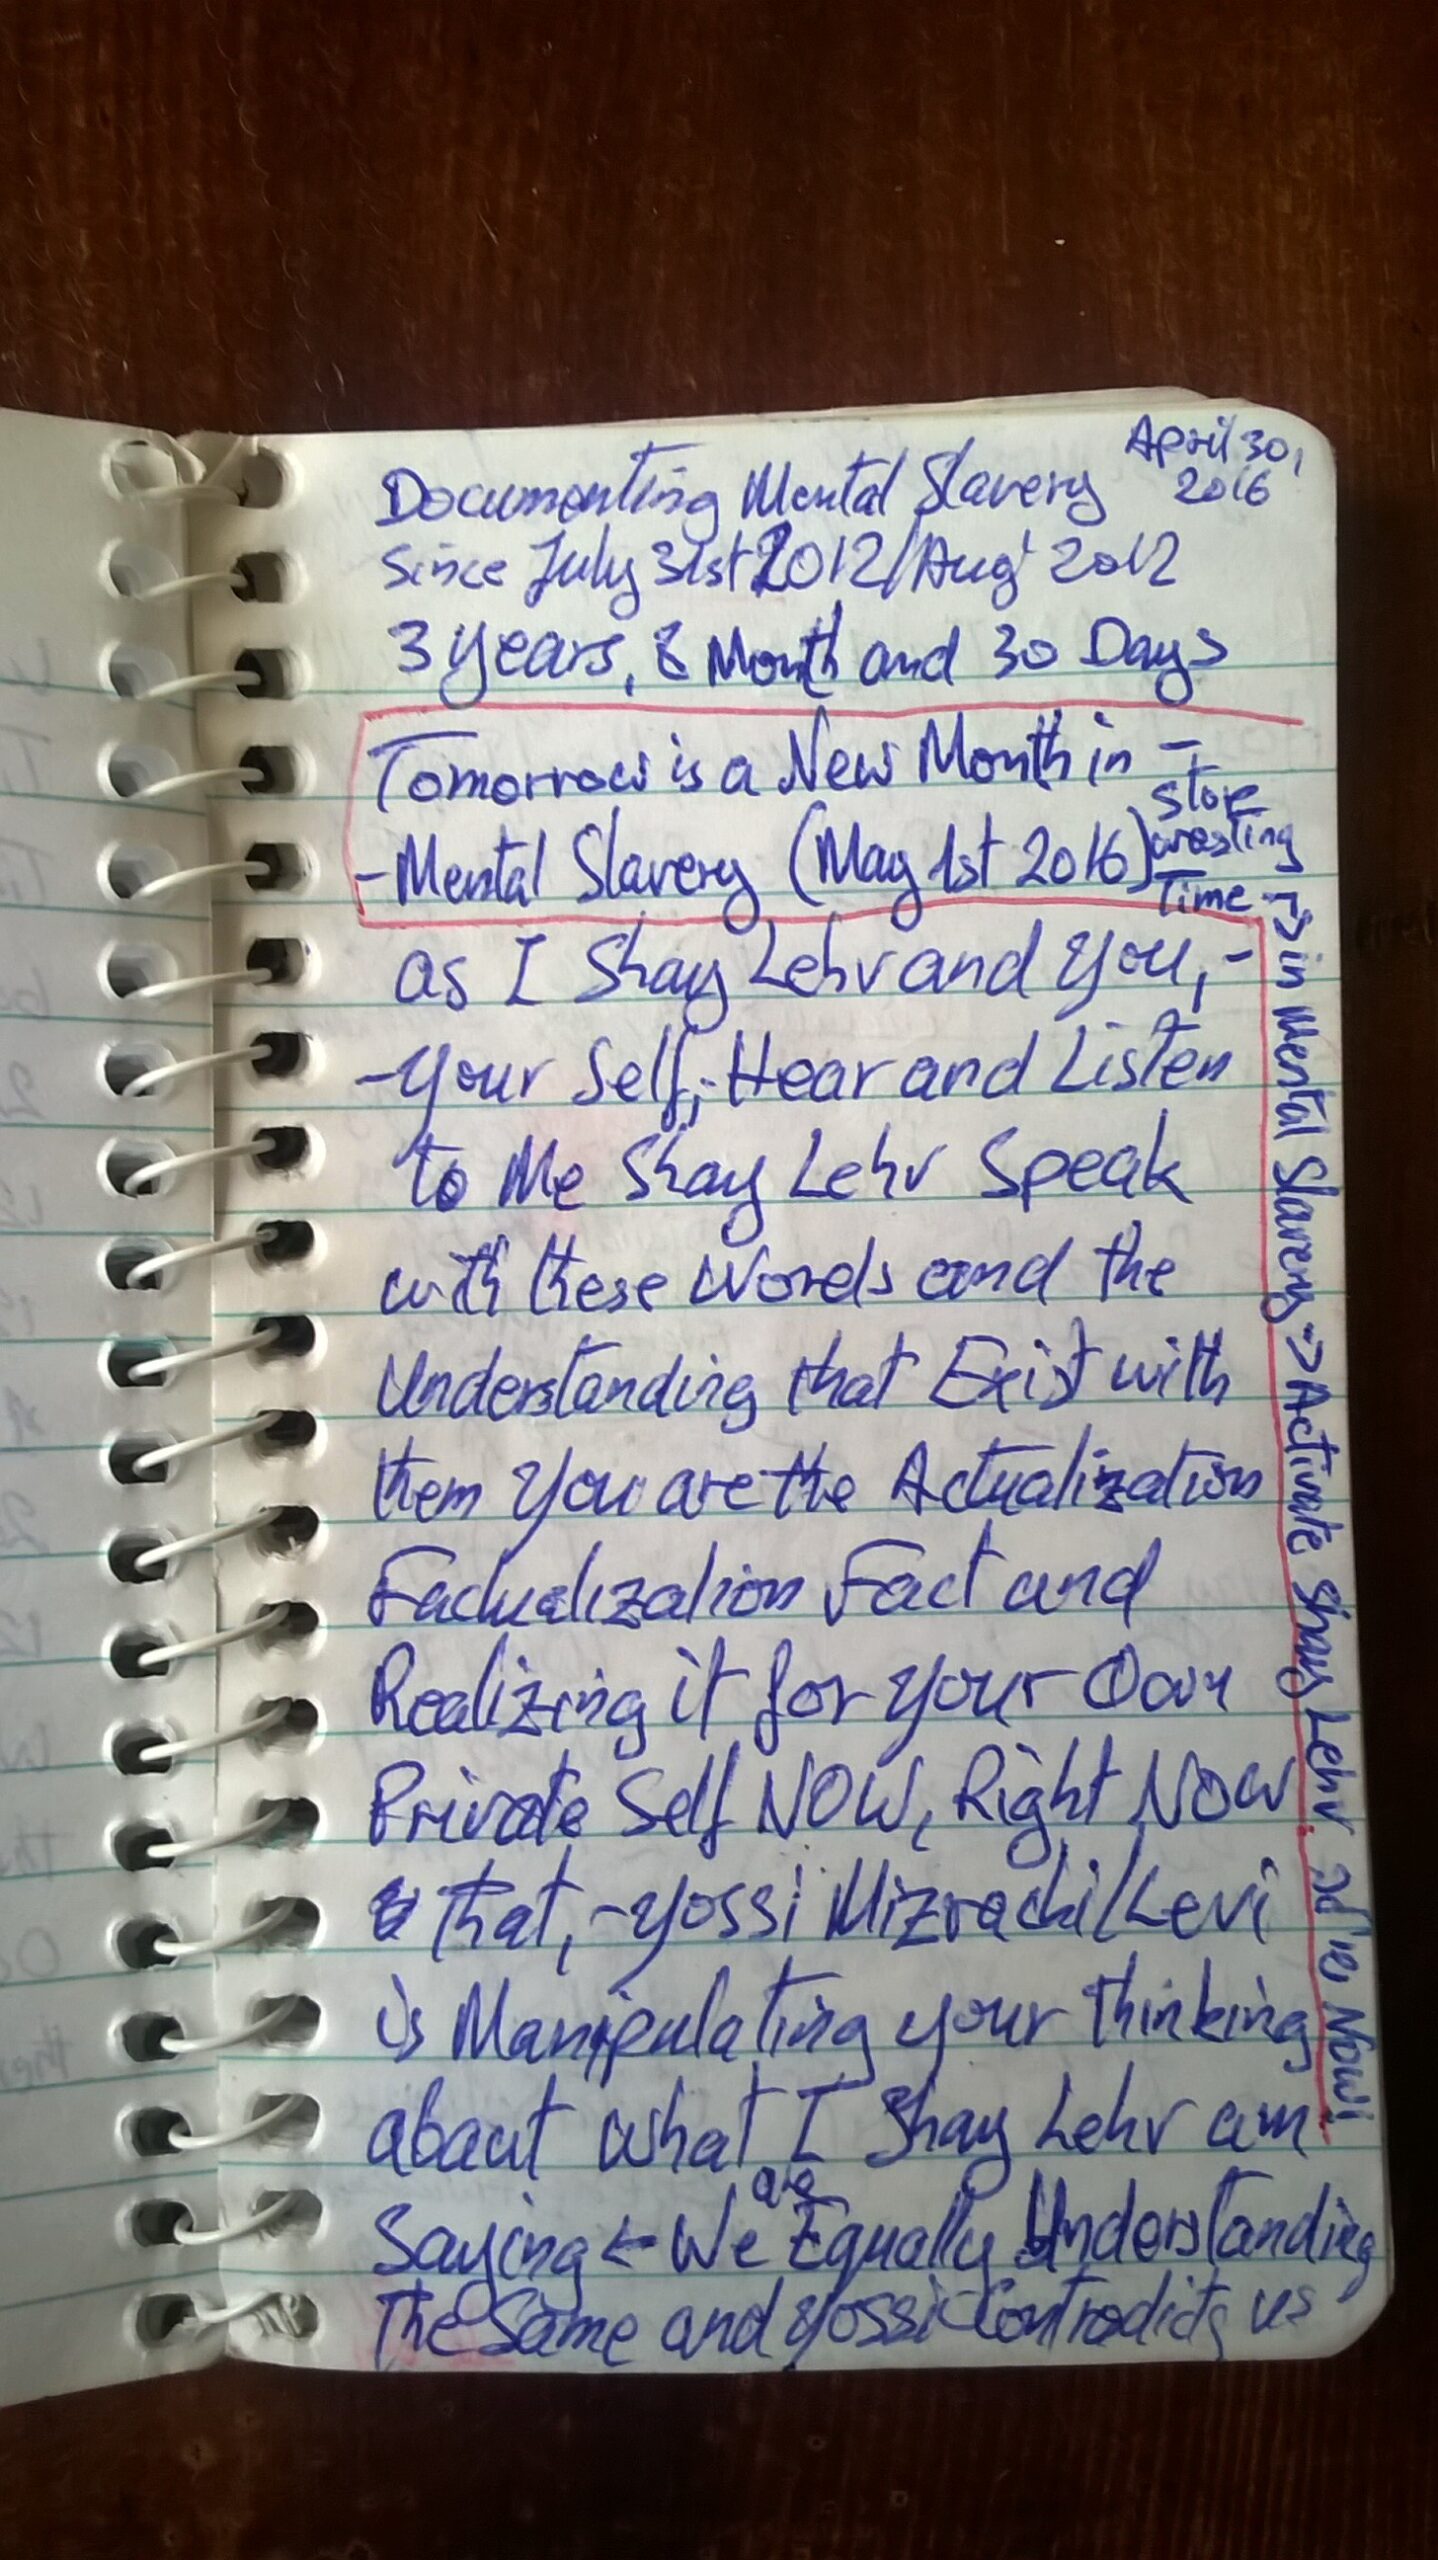 April 30,
2016
Documenting Mental Slavery
Since July 31st 2012/Aug' 2012
3 years, 8 Month and 30 Days
Tomorrow is a New Month in -
- Mental Slavery (May 1st 2016)
Stop
wasting
Time
-> in Mental Slavery -> Activate Shay Lehr Now!
as I Shay Lehr and you, -
- your Self, - Hear and Listen
to Me Shay Lehr Speak
with these Words and the
Understanding that Exist with
them you are the Actualization
Factualization Fact and
Realizing it for your Own
Private Self NOW, Right NOW
that, - yossi Mizrachi/Levi
is Manipulating your thinking
about what I Shay Lehr am
Saying <- We are Equally Understanding
The Same and yossi Contradicts us